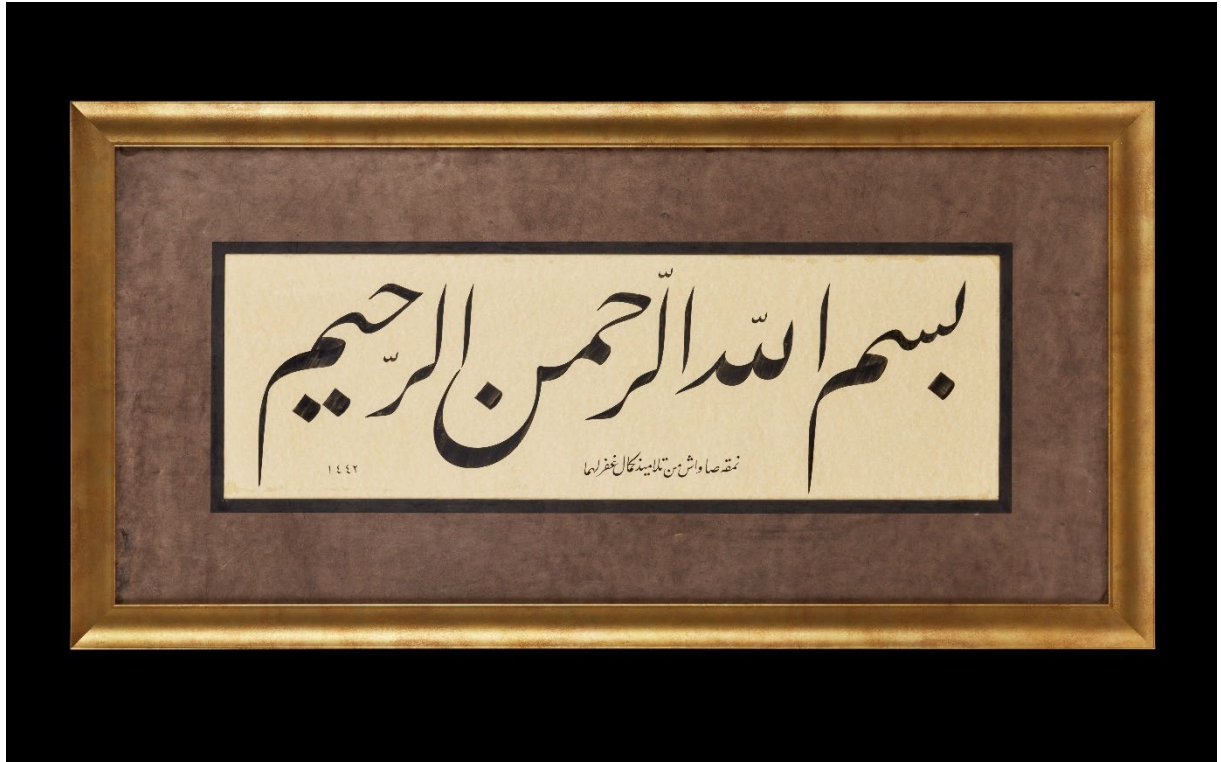 بسم الله الرَّحمن الرَّحيم
نمقه صاواش من تلاميذ كمال غفر لهما
١٤٤٢